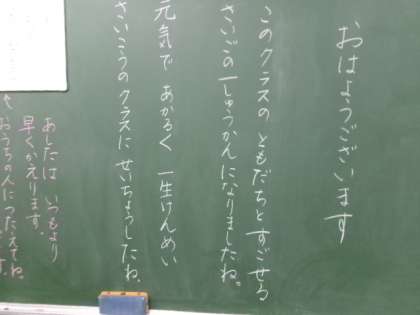 おはようございます
このクラスの ともだちとすごせる
さいごの一しゅうかんになりましたね。
元気で あかるく 一生けんめい
さいこうのクラスに せいちょうしたね。
あしたは いつもより
早くかえります。
おうちの人につたえてね。